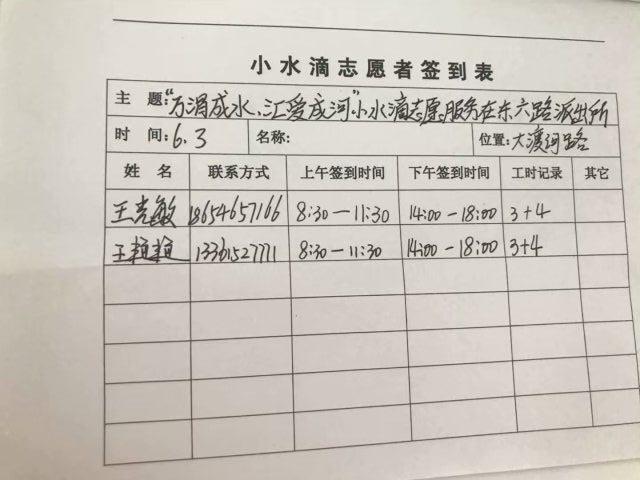 小水滴志愿者签到表
主 题:“万涓成水、汇爱成河”小水滴志愿服务在东六路派出所
时 间:6.3 名称: 位置:大渡河路
姓 名 联系方式 上午签到时间 下午签到时间 工时记录 其它
王竞敏 18654657166 8:30—11:30 14:00-18:00 3+4
王植植 13361527771 8:30—11:30 14:00-18:00 3+4